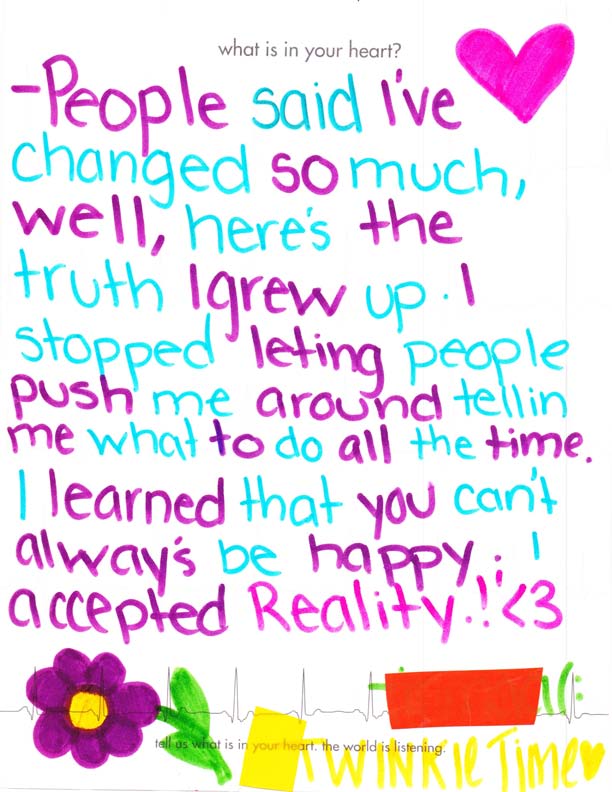 what is in your heart?
-People said I've
changed so much,
well, here's the
truth I grew up. I
stopped leting people
push me around tellin
me what to do all the time.
I learned that you can't
alway's be happy. I
accepted Reality.!<3
tell us what is in your heart. the world is listening.
TWINKle Time